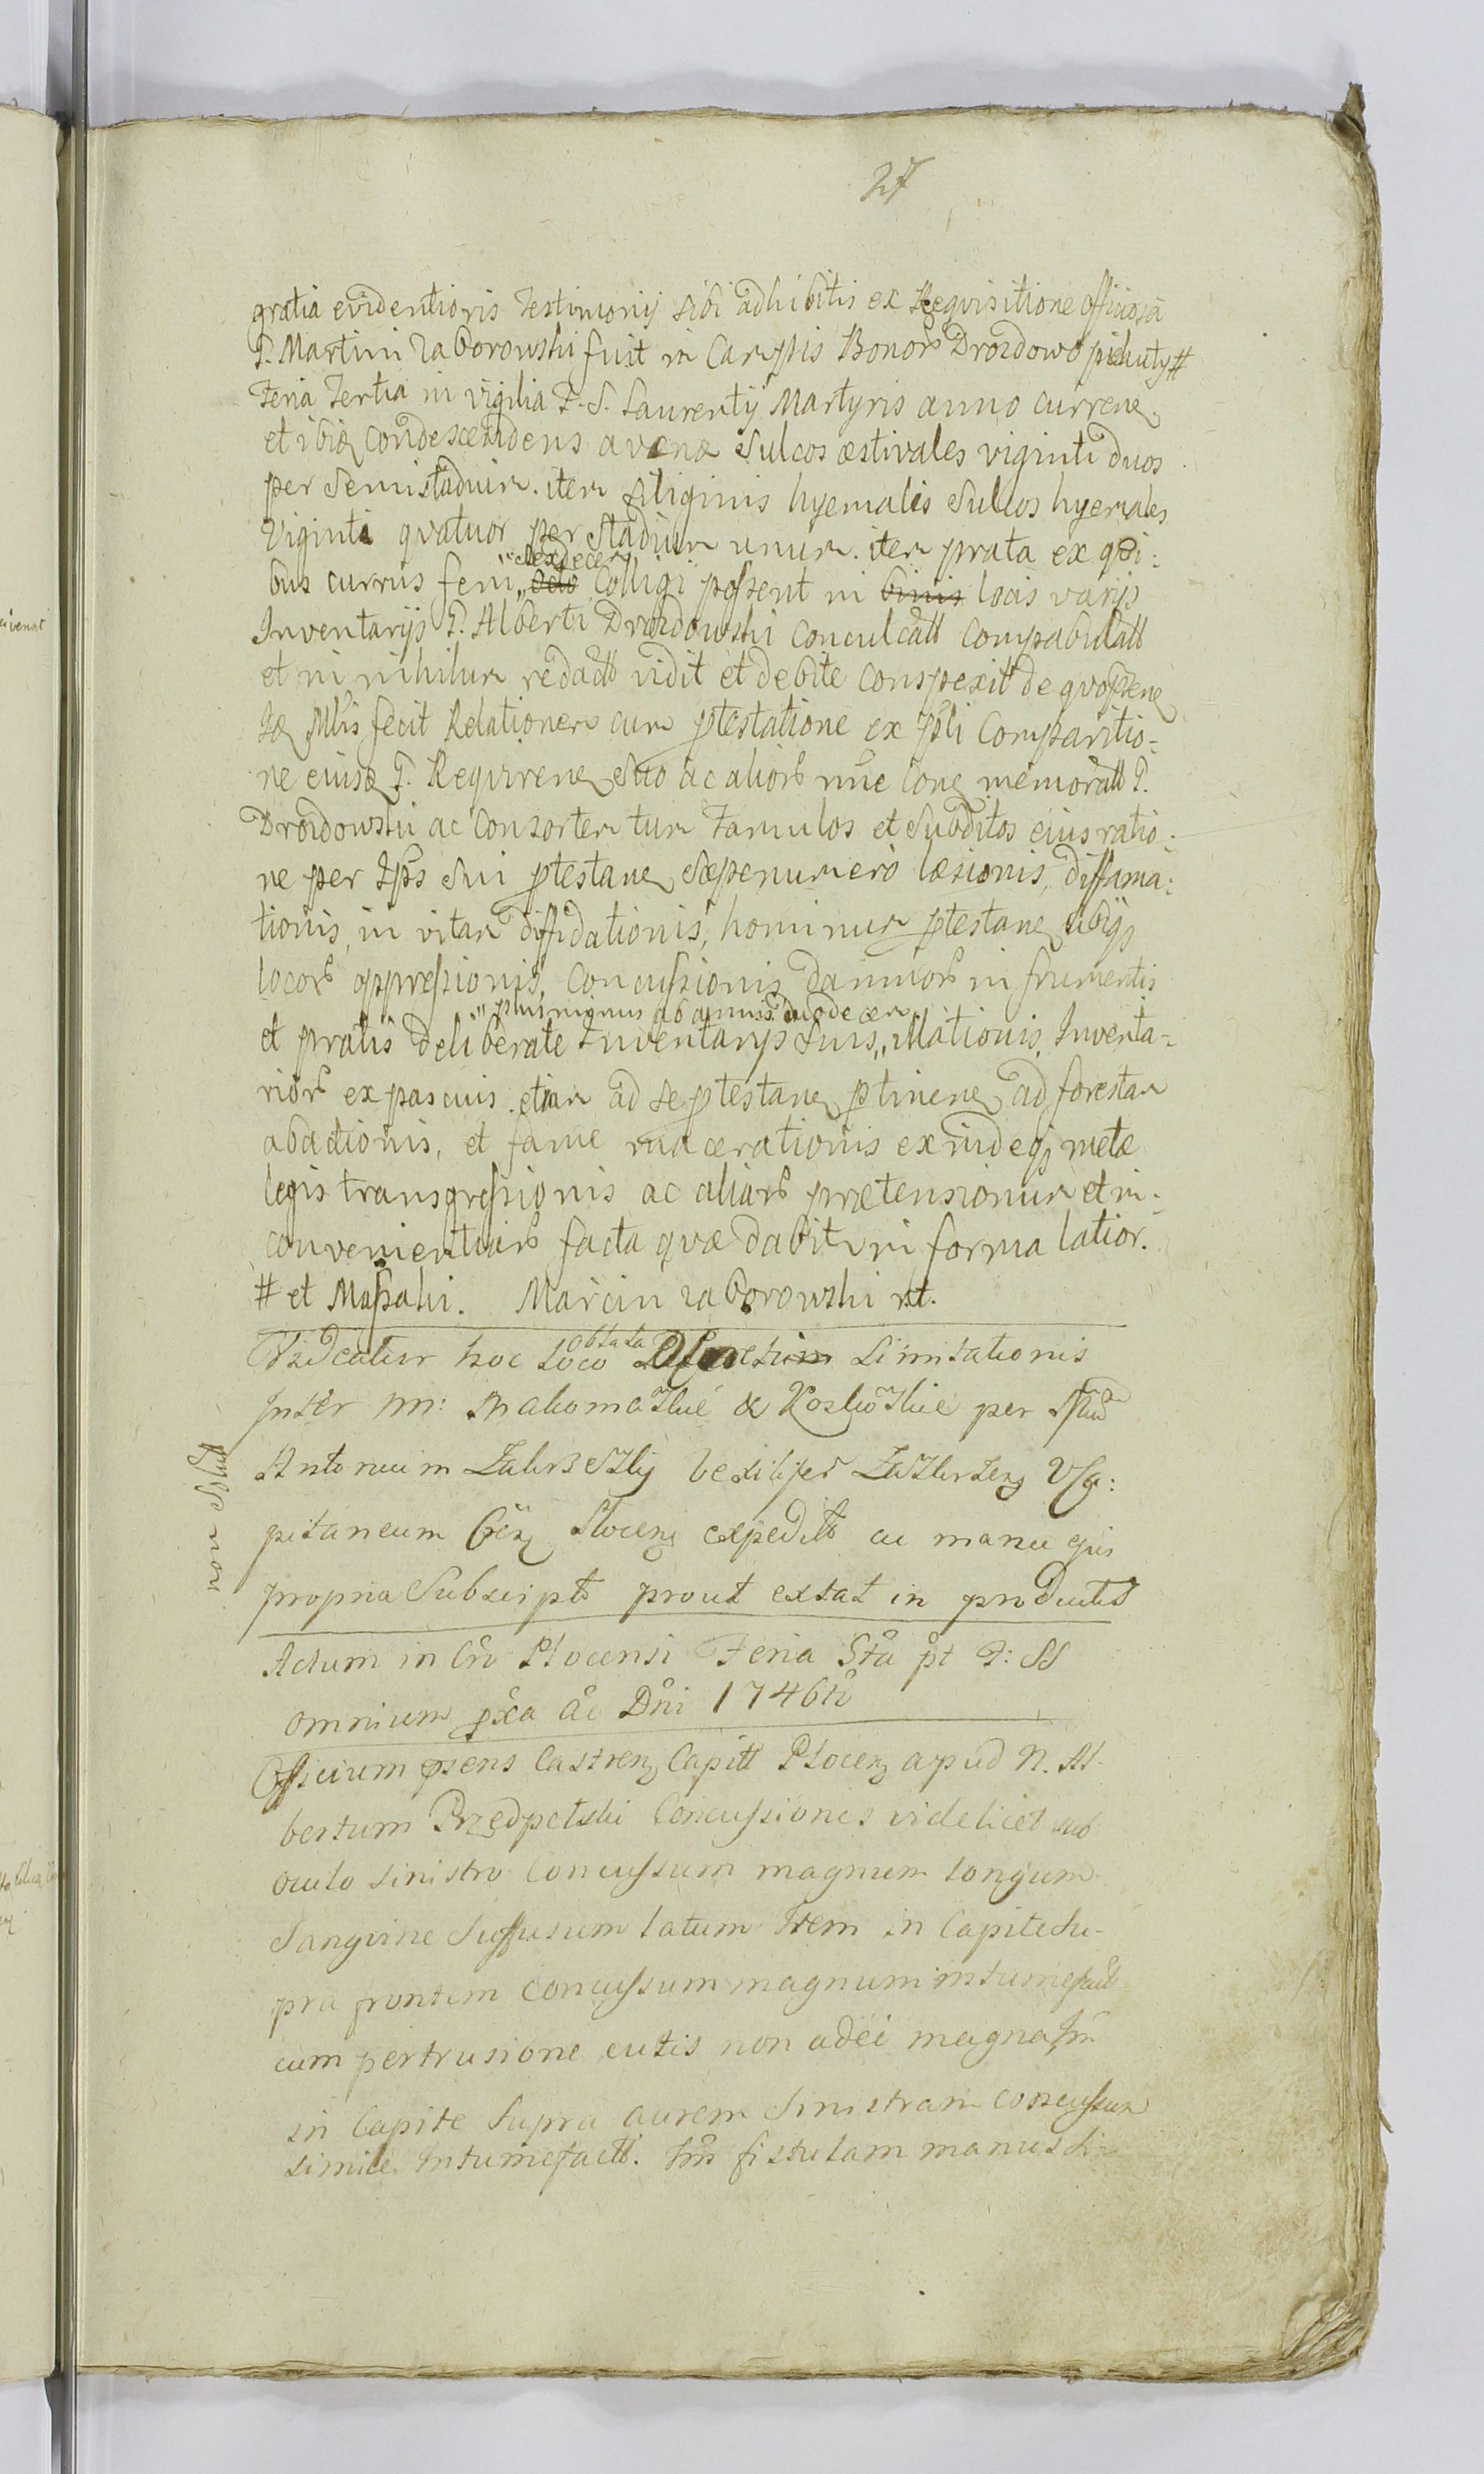 27
gratia evidentioris Testimonij sibi adhibitis ex Reqvisitione officiosa
P. Martini Zaborowski fuit in Campis Bonor Drozdowo pichuty #
Feria Tertia in vigilia F. S. Laurentij Martyris anno curren
et ibiq condescendens avenæ sulcos æstivales viginti duos
per semistadium. item siliginis hyemalis sulcos hyemales
Viginti qvatuor per stadium unum. item prata ex qvi:
sexdecem
bus currus feni octo Colligi possent in binis locis varijs
Inventarijs P. Alberti Drozdowski conculcatt compabulatt
et in nihilum redactt vidit et debite conspexit de qvo
fecit Relationem cum ptestatione ex Comparitio:
ne eiusq P. Reqviren suo ac alior nnie memoratt P.
Drozdowski ac Consortem tum Famulos et Subditos eius ratio:
ne per Ips sui ptestan sæpenumero læsionis, diffama:
tionis, in vitam diffidationis, hominum ptestan ubiq
locor oppressionis, Concussionis damnor in frumentis
plusminus ab annis duodecem
et pratis deliberate Inventarijs suis, illationis, Inventa-
rior ex pascuis etiam ad se ptestan ptinen ad forestam
abactionis, et fame macerationis exindeq metæ
legis transgressionis ac aliar prætensionum et in-
convenientiar facta qvæ dabit in forma latior.
# et Maspahi. Marcin Zaborowski mt.
oblata
Videatur hoc loco Limitationis
Inter NN: Makomaskie & Kosskoskie per
non solut
Antonium Zakrzeski Vexilifer
pitaneum Plocen expeditt ac manu ejus
propria Subscripto prout extat in productis
Actum in Cro Plocensi Feria Sta pt F: SS
omnium pxa Ao Dni 1746to
Officium psens Castren Capitt Plocen apud N. Al-
bertum Przedpełski Concussiones videlicet sub
oculo sinistro Concussum magnum longum
Sangvine suffusum latum Item in Capite su-
pra frontem concussum magnum intumefactt
cum pertrusione cutis non adei magna Itm
in Capite supra aurem sinistram concussum
simile Intumefactt. Itm fistulam manus si-